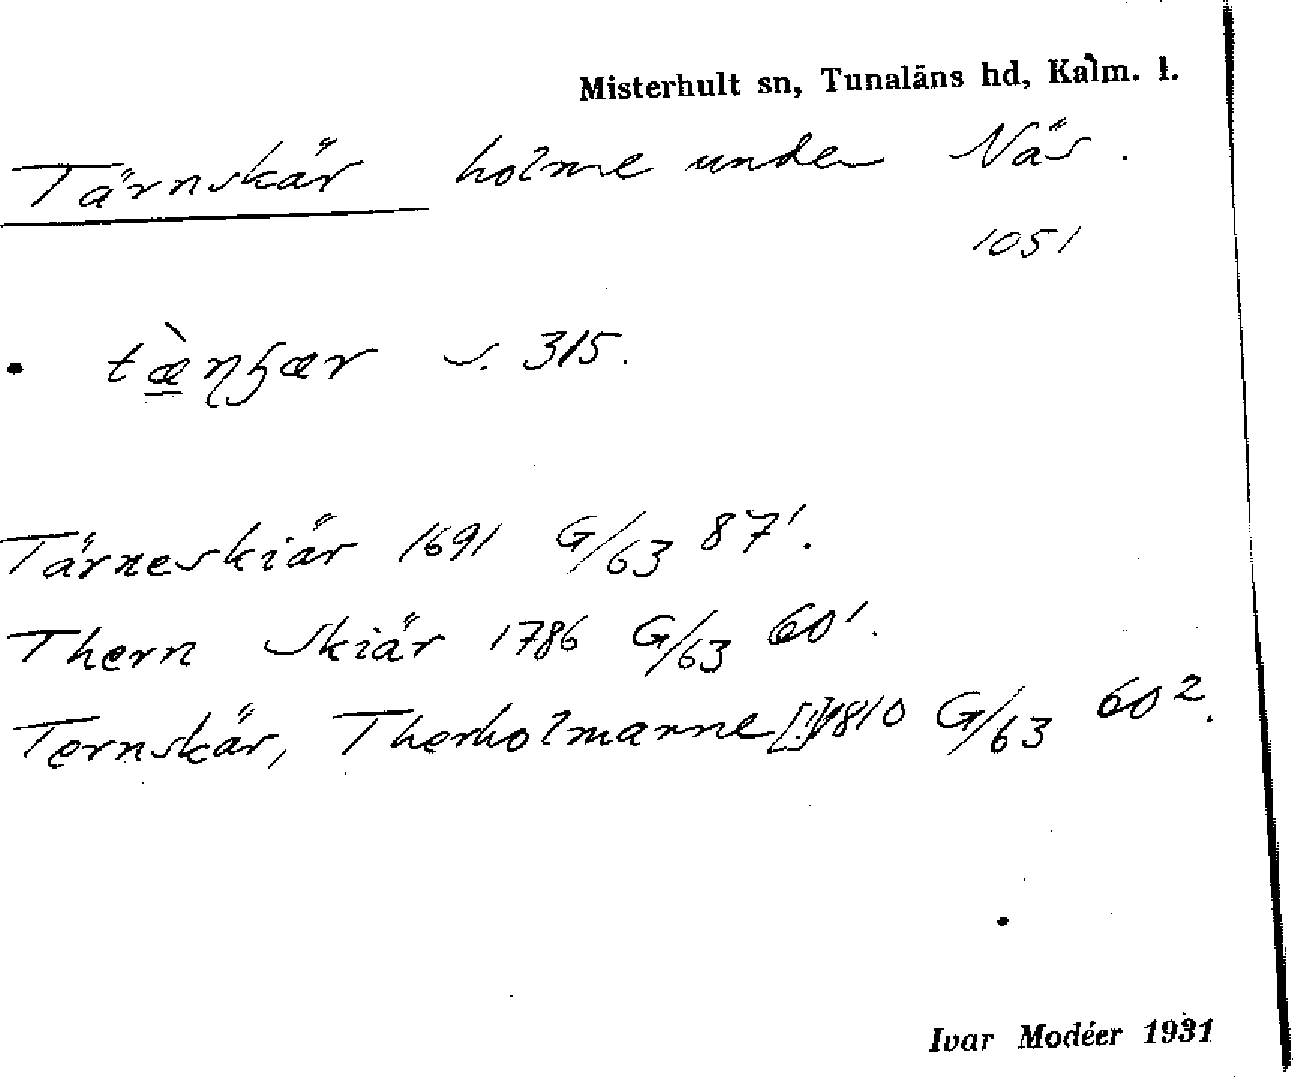 Misterhult sn, Tunaläns hd, Kalm. l.
Tärnskär holme under Näs.
1051
s. 315.
Tärneskiär 1691 G/63 87¹.
Thern skiär 1786 G/63 60¹.
Ternskär, Therholmarne [!] 1810 G/63 60².
Ivar Modéer 1931